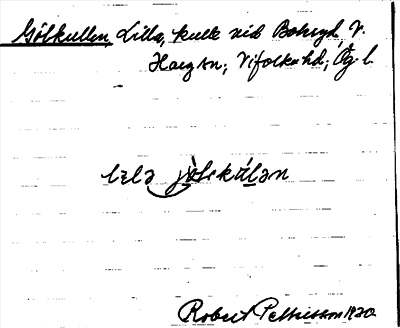 Gölkullen, Lilla, kulle vid Bohrgd, V.
Harg sn; Vifolka hd; Ög. l.
lɩlə jölskúlən
Robert Pettersson 1920